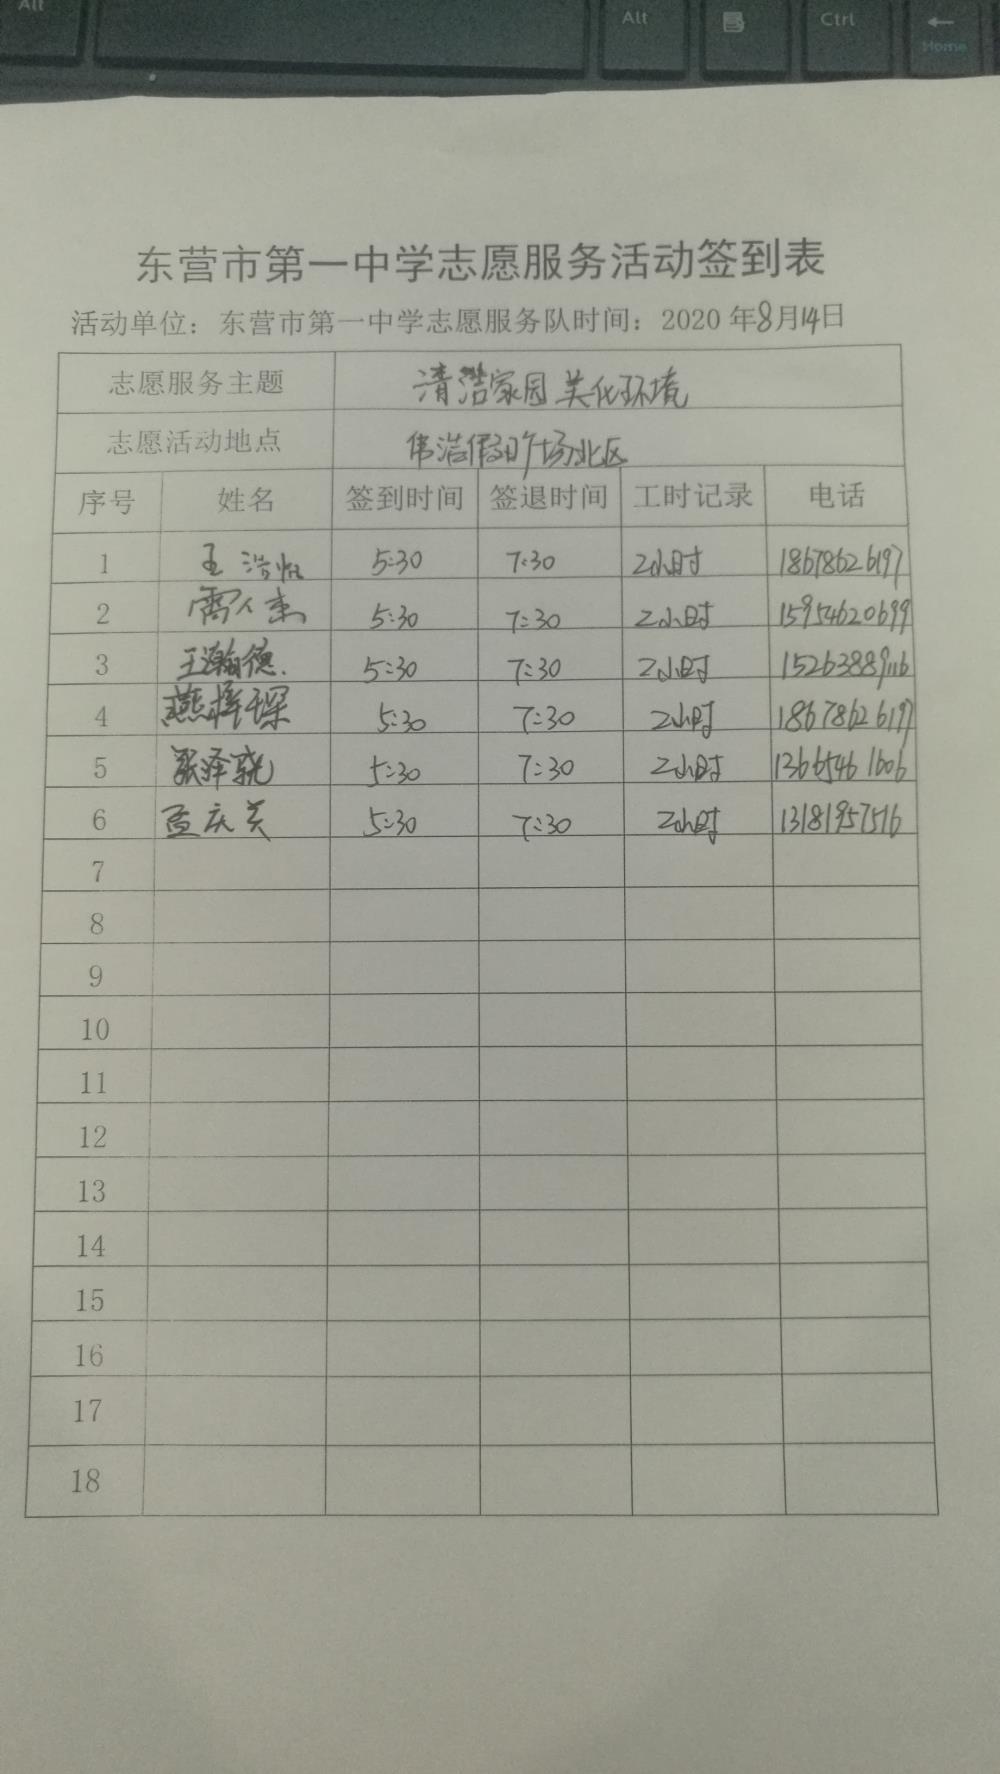 Alt Alt Ctrl Home
东营市第一中学志愿服务活动签到表
活动单位：东营市第一中学志愿服务队时间：2020 年8月14日
志愿服务主题 清洁家园 美化环境
志愿活动地点 伟浩假日广场北区
序号 姓名 签到时间 签退时间 工时记录 电话
1 王浩 5:30 7:30 2小时 18678626197
2 5:30 7:30 2小时 15954620699
3 王瀚德. 5:30 7:30 2小时 15263889116
4 燕梓琛 5:30 7:30 2小时 18678626197
5 张泽骁 5:30 7:30 2小时 13665461606
6 孟庆 5:30 7:30 2小时 13181957516
7
8
9
10
11
12
13
14
15
16
17
18